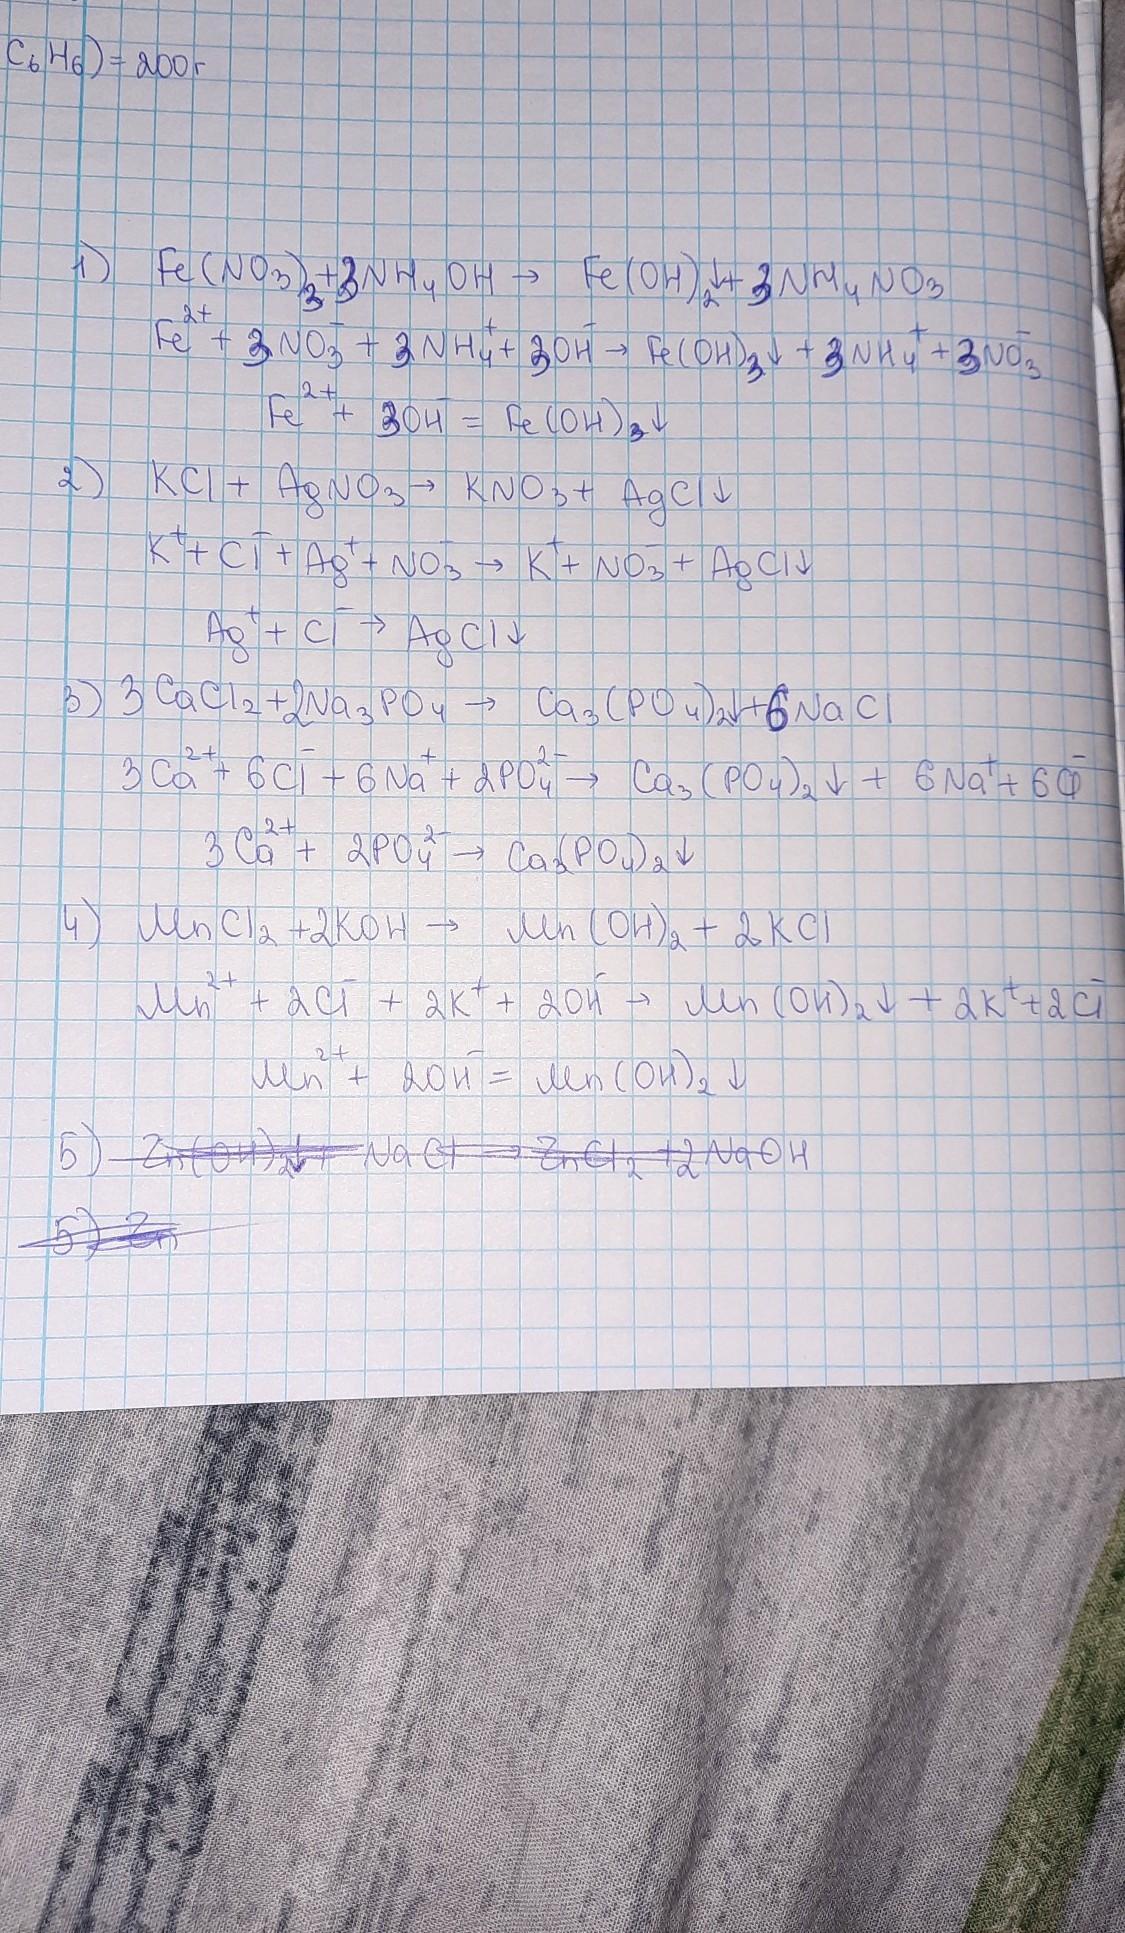 C₆H₆) = 200г
1) Fe(NO₃)₃ + 3NH₄OH → Fe(OH)₂↓ + 3NH₄NO₃
Fe²⁺ + 3NO₃⁻ + 3NH₄⁺ + 3OH⁻ → Fe(OH)₃↓ + 3NH₄⁺ + 3NO₃⁻
Fe²⁺ + 3OH⁻ = Fe(OH)₃↓
2) KCl + AgNO₃ → KNO₃ + AgCl↓
K⁺ + Cl⁻ + Ag⁺ + NO₃⁻ → K⁺ + NO₃⁻ + AgCl↓
Ag⁺ + Cl⁻ → AgCl↓
3) 3CaCl₂ + 2Na₃PO₄ → Ca₃(PO₄)₂↓ + 6NaCl
3Ca²⁺ + 6Cl⁻ + 6Na⁺ + 2PO₄²⁻ → Ca₃(PO₄)₂↓ + 6Na⁺ + 6Cl⁻
3Ca²⁺ + 2PO₄²⁻ → Ca₃(PO₄)₂↓
4) MnCl₂ + 2KOH → Mn(OH)₂ + 2KCl
Mn²⁺ + 2Cl⁻ + 2K⁺ + 2OH⁻ → Mn(OH)₂↓ + 2K⁺ + 2Cl⁻
Mn²⁺ + 2OH⁻ = Mn(OH)₂↓
5) Zn(OH)₂↓ + NaCl → ZnCl₂ + 2NaOH
5) Zn